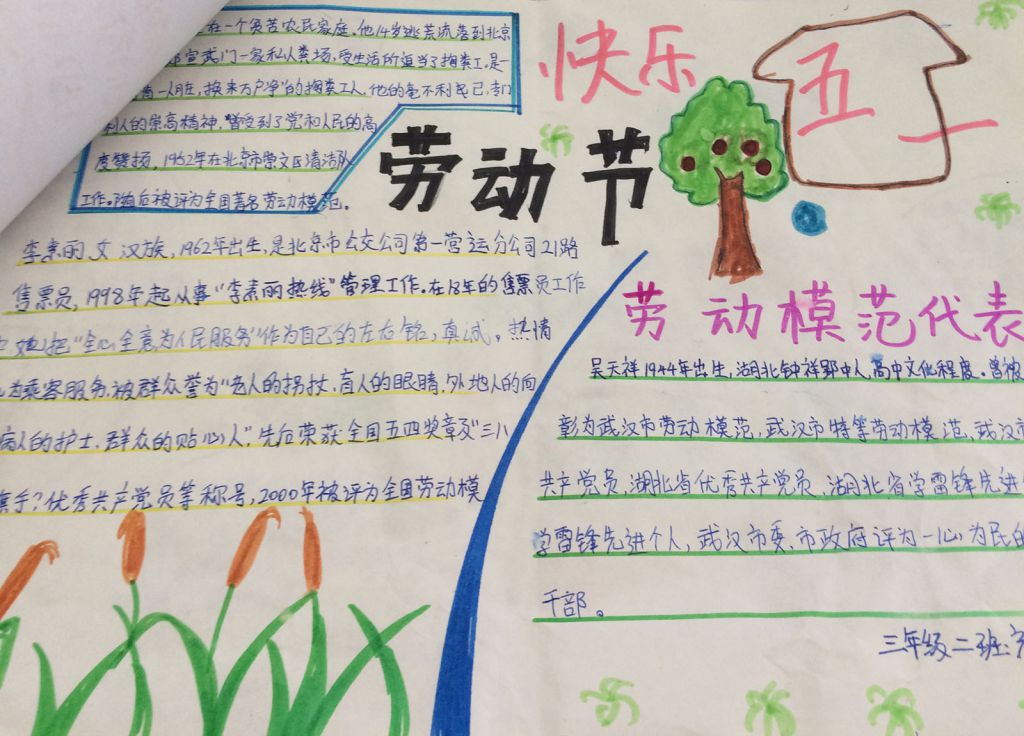 在一个贫苦农民家庭。他14岁逃荒流落到北京
宣武门一家私人粪场,受生活所逼当了掏粪工。是
人脏,换来万户净"的掏粪工人,他的毫不利己,专门
利人的崇高精神,曾受到了党和人民的高
度赞扬,1952年在北京市崇文区清洁队
工作。随后被评为全国著名劳动模范。
劳动节
快乐
五一
李素丽,女 汉族,1962年出生,是北京市公交公司第一营运分公司21路
售票员,1998年起从事"李素丽热线"管理工作。在18年的售票员工作
她把"全心全意为人民服务"作为自己的座右铭,真诚。热情
为乘客服务,被群众誉为"老人的拐杖,盲人的眼睛,外地人的向
病人的护士,群众的贴心人"。先后荣获全国五四奖章及"三八
旗手",优秀共产党员等称号,2000年被评为全国劳动模
劳动模范代表
吴天祥1944年出生,湖北钟祥郢中人,高中文化程度。曾被
彰为武汉市劳动模范,武汉市特等劳动模范,武汉市
共产党员,湖北省优秀共产党员,湖北省学雷锋先进
学雷锋先进个人,武汉市委、市政府评为一心为民的
干部。
三年级二班: